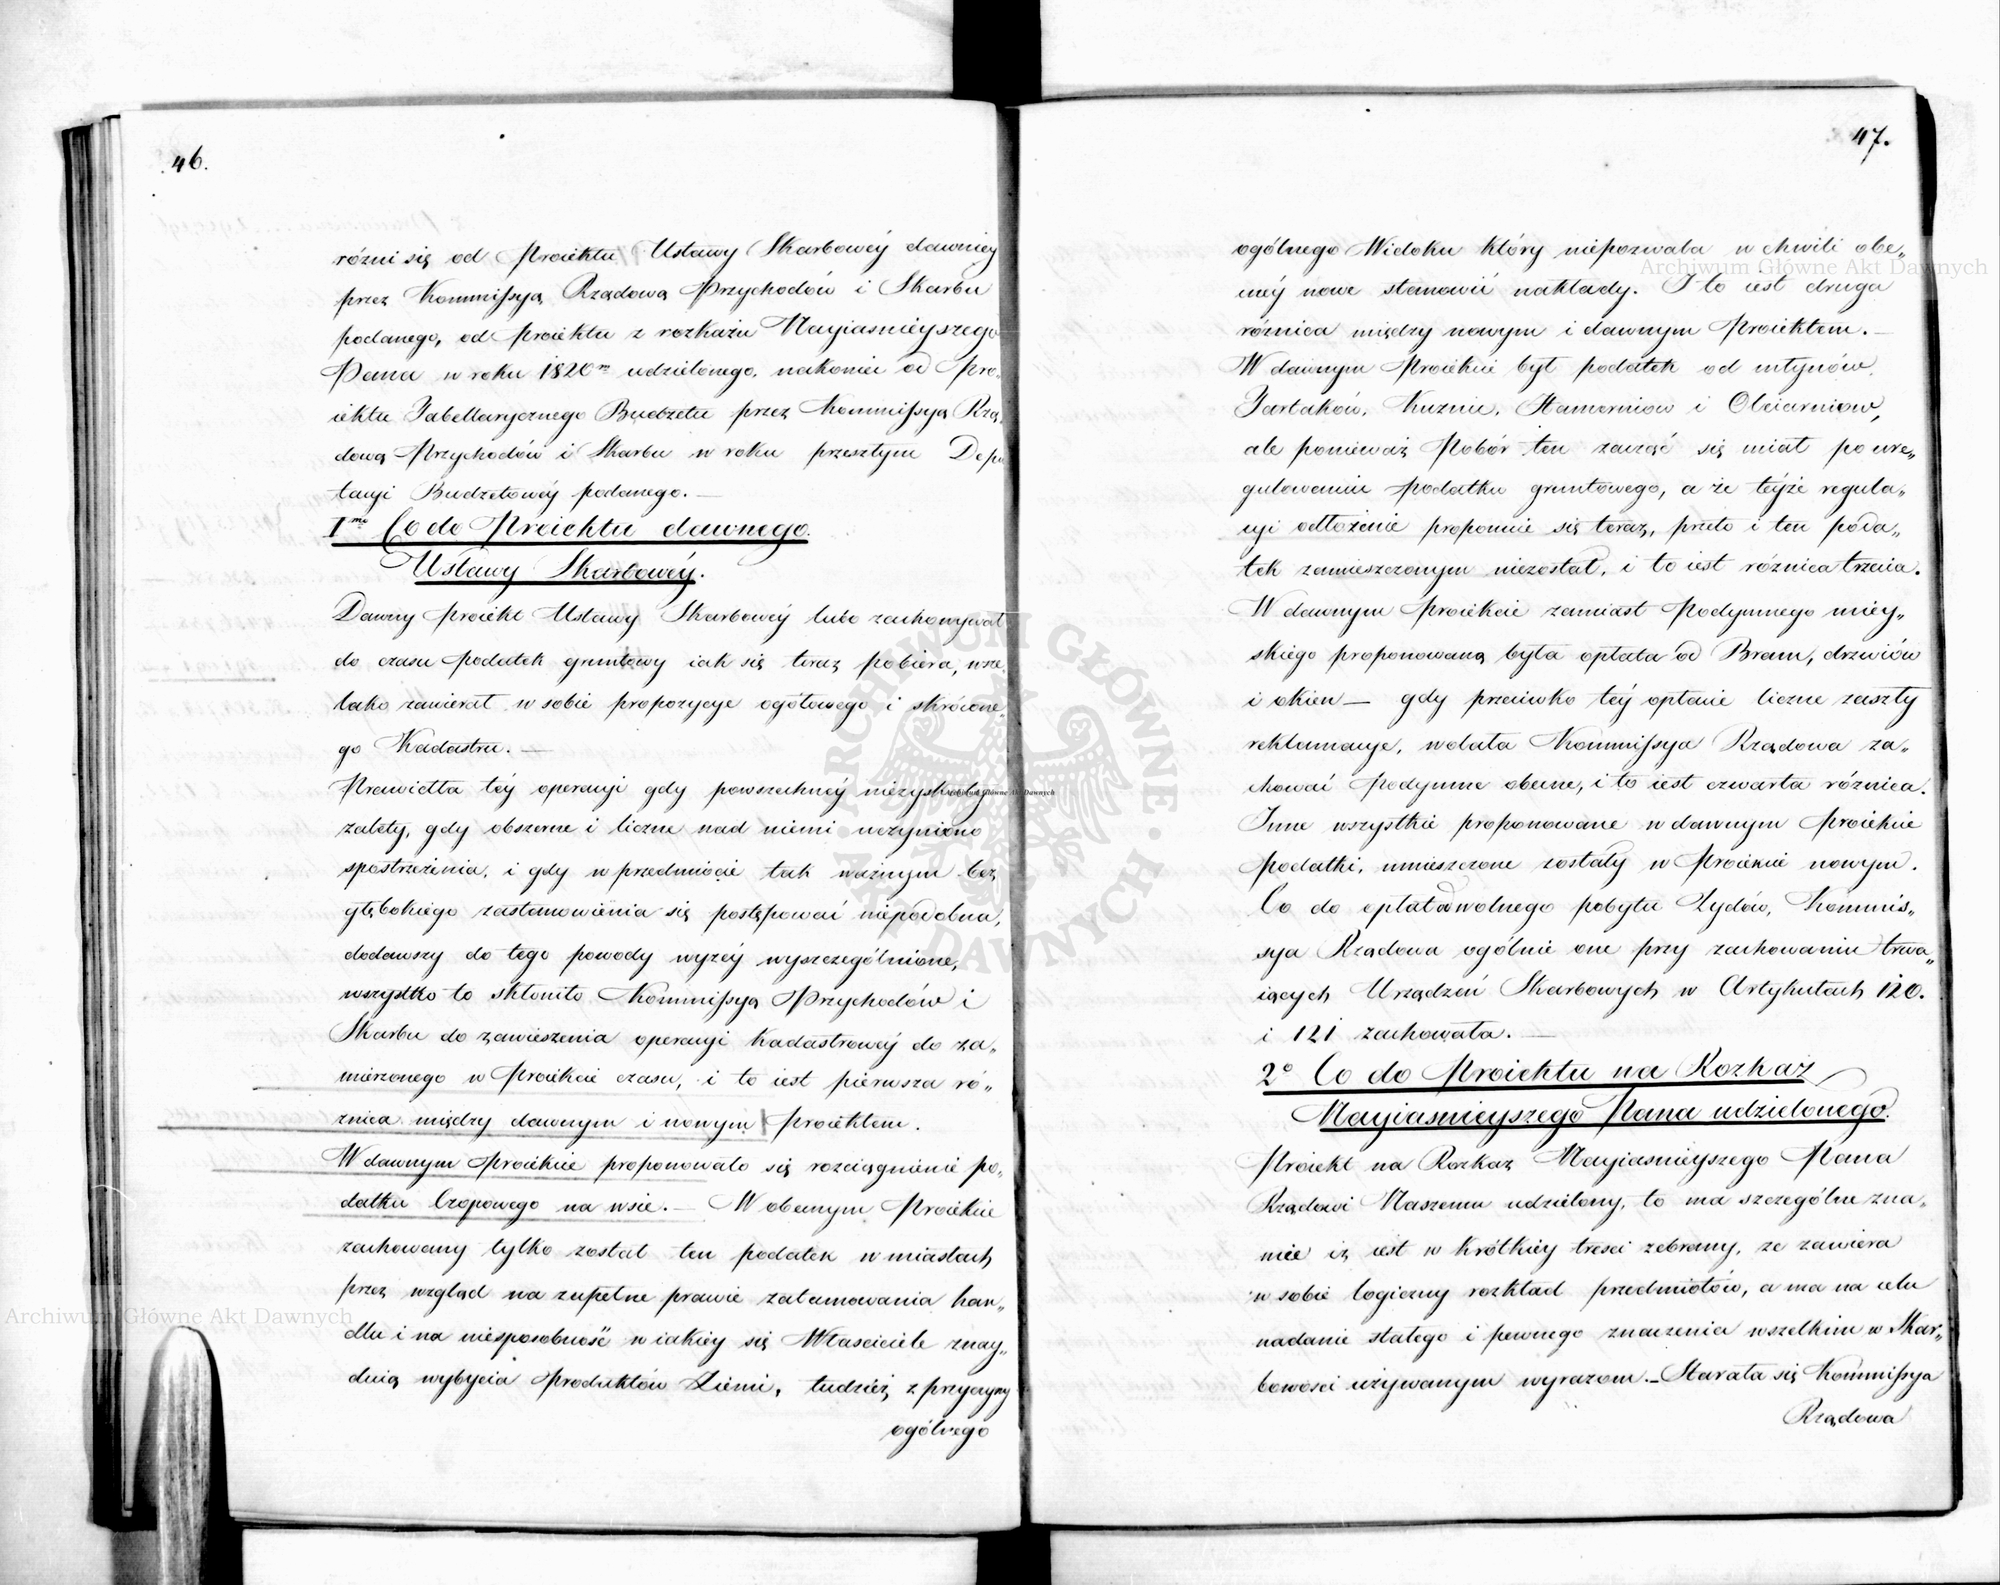 46.
różni się od Proiektu Ustawy Skarbowéy dawniey
przez Kommissyą Rządową Przychodów i Skarbu
podanego, od proiektu z rozkazu Nayiasnieyszego
Pana w roku 1820m udzielonego, nakoniec od Pro„
iektu Tabellarycznego Budżetu przez Kommissyą Rzą„
dową Przychodów i Skarbu w roku przeszłym Depu
tacyi Budżetowéy podanego. —
Imo Co do Proiektu dawnego
Ustawy Skarbowéy.
Dawny proiekt Ustawy Skarbowéy lubo zachowywał
do czasu podatek gruntowy iak się teraz pobiera, wsze
lako zawierał w sobie propozycye ogółowego i skrócone„
go Kadastru. —
Prawidła téy operacyi gdy powszechnéy niezyskały
zalety, gdy obszerne i liczne nad niemi uczyniono
spostrzeżenia, i gdy w przedmiocie tak ważnym bez
głębokiego zastanowienia się postępować niepodobna,
dodawszy do tego powody wyżéy wyszczególnione,
wszystko to skłoniło Kommissyą Przychodów i
Skarbu do zawieszenia operacyi Kadastrowéy do za„
mierzonego w Proiekcie czasu, i to iest pierwsza ró„
żnica między dawnym i nowym Proiektem.
W dawnym Proiekcie proponowało się rozciągnienie po„
datku Czopowego na wsie. — W obecnym Proiekcie
zachowany tylko został ten podatek w miastach
przez wzgląd na zupełne prawie zatamowania han„
dlu i na niesposobność w iakiéy się Właściciele znay„
duią wybycia Produktów Ziemi, tudzież z przyczyny
ogólnego
47.
ogólnego Widoku który niepozwala w chwili obe„
cnéy nowe stanowić nakłady. I to iest druga
różnica między nowym i dawnym Proiektem. —
W dawnym Proiekcie był podatek od młynów,
Tartaków, Kuźnic, Hamerniow i Olearniow,
ale ponieważ Pobór ten zacząć się miał po ure„
gulowaniu podatku gruntowego, a że téyże regula„
cyi odłożenie proponuie się teraz, przeto i ten poda„
tek zamieszczonym niezostał, i to iest różnica trzecia.
W dawnym Proiekcie zamiast Podymnego miey„
skiego proponowaną była opłata od Bram, drzwiów
i okien — gdy przeciwko téy opłacie liczne zaszły
reklamacye, wolała Kommissya Rządowa za„
chować Podymne obecne, i to iest czwarta różnica.
Inne wszystkie proponowane w dawnym Proiekcie
podatki, umieszczone zostały w Proiekcie nowym.
Co do opłat od wolnego pobytu Żydów, Kommis„
sya Rządowa ogólnie one przy zachowaniu trwa„
iących Urządzeń Skarbowych w Artykułach 120.
i 121 zachowała. —
2o Co do Proiektu na Rozkaz
Nayiasnieyszego Pana udzielonego.
Proiekt na Rozkaz Nayiasnieyszego Pana
Rządowi Naszemu udzielony, to ma szczególne zna„
mie iż iest w krótkiéy tresci zebrany, ze zawiera
w sobie logiczny rozkład przedmiotów, a ma na celu
nadanie stałego i pewnego znaczenia wszelkim w Skar„
bowosci używanym wyrazom. — Starała się Kommissya
Rządowa